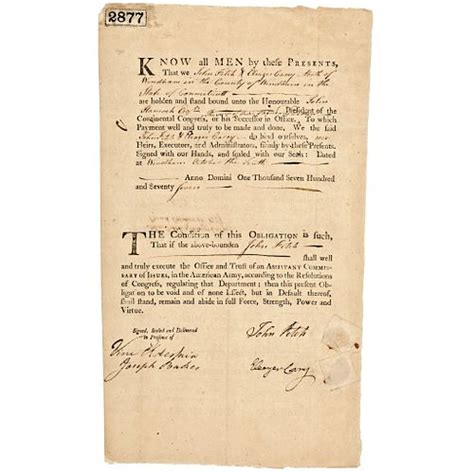 2877
KNOW all MEN by these PRESENTS,
That we John Fitch & Eleazer Cary both of
Windham in the County of Windham in the
State of Connecticut
are holden and stand bound unto the Honourable John
Hancock Esqr President of the
Continental Congress, or his Successor in Office. To which
Payment well and truly to be made and done. We the said
John Fitch & Eleazer Cary do bind ourselves, our
Heirs, Executors, and Administrators, firmly by these Presents.
Signed with our Hands, and sealed with our Seals: Dated
at Windham October the Tenth
Anno Domini One Thousand Seven Hundred
and Seventy seven
THE Condition of this OBLIGATION is such,
That if the above-bounden John Fitch
shall well
and truly execute the Office and Trust of an ASSISTANT COMMIS-
SARY of ISSUES, in the American Army, according to the Resolutions
of Congress, regulating that Department: then this present Obli-
gation to be void and of none Effect, but in Default thereof,
shall stand, remain and abide in full Force, Strength, Power and
Virtue.
Signed, Sealed and Delivered
in Presence of
John Fitch
Joseph
Eleazer Cary